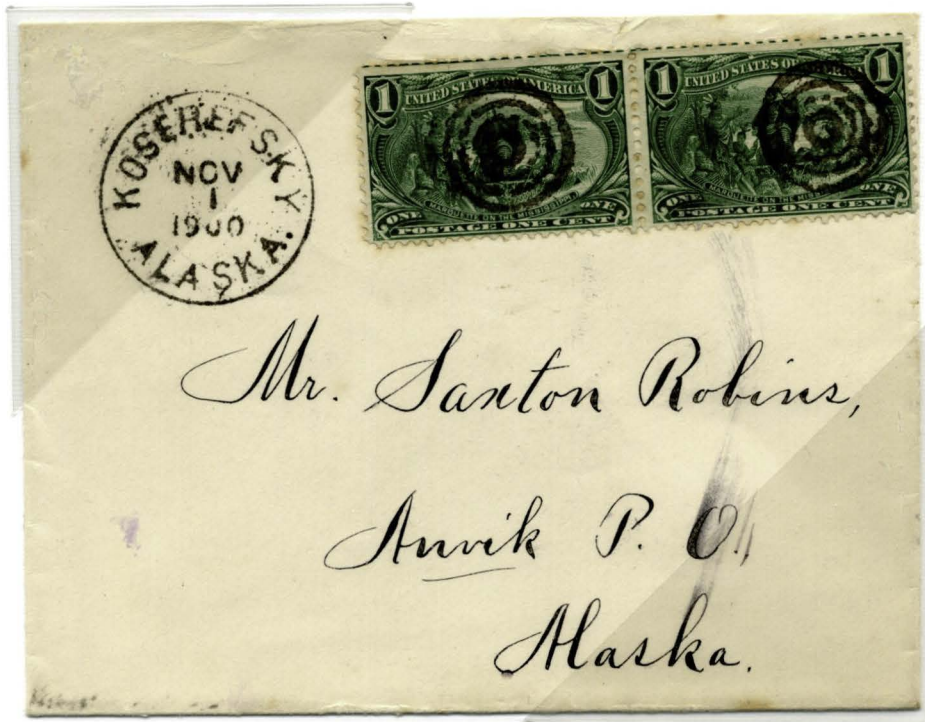 KOSEREFSKY
NOV
1
1900
ALASKA.
1 UNITED STATES OF AMERICA 1
MARQUETTE ON THE MISSISSIPPI
ONE ONE
POSTAGE ONE CENT
1 UNITED STATES OF AMERICA 1
MARQUETTE ON THE MISSISSIPPI
ONE ONE
POSTAGE ONE CENT
Mr. Saxton Robins,
Anvik P. O.,
Alaska.